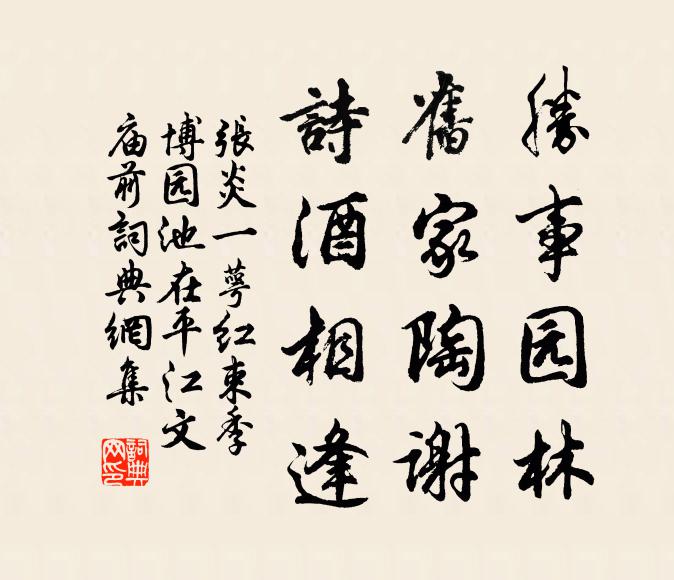 勝事园林
舊家陶谢
詩酒相逢
張炎一萼红束季
博园池在平江文
庙前詞典網集
詞典網印